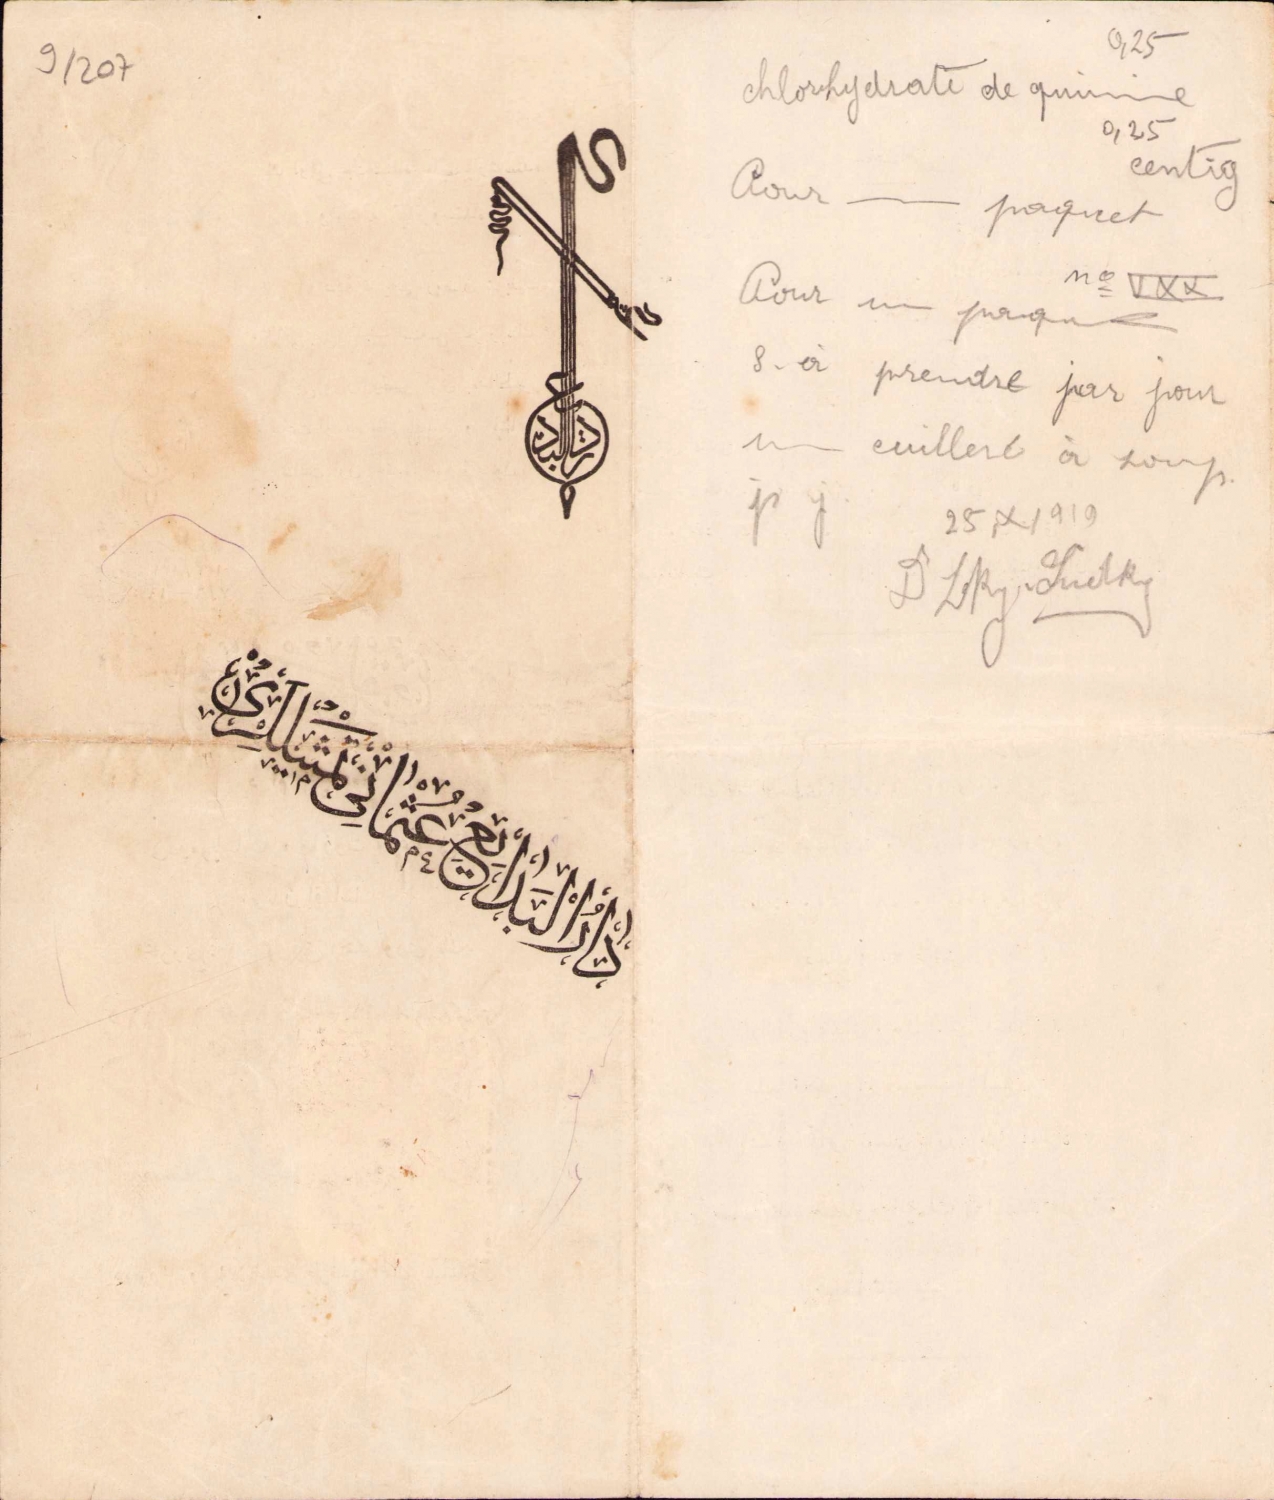 9/207
دار البدائع
دَارُ الْبَدَايِعْ عُثْمَانِى تَمْثِيلْلَرِى
0,25
chlorhydrate de quinine
0,25
centig
Pour — paquet
nº VXX
Pour un paqu
8. à prendre par jour
un cuillere à soup.
p j.
25/X/1919
Dr